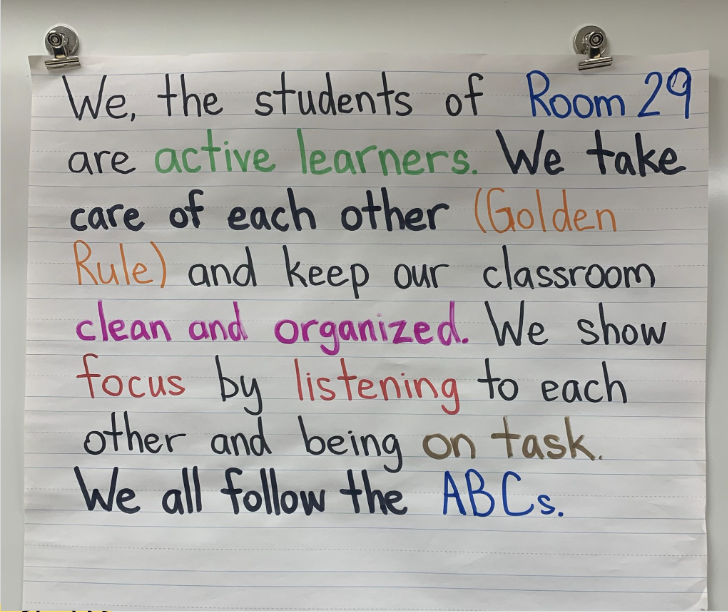 We, the students of Room 29
are active learners. We take
care of each other (Golden
Rule) and keep our classroom
clean and organized. We show
focus by listening to each
other and being on task.
We all follow the ABCs.